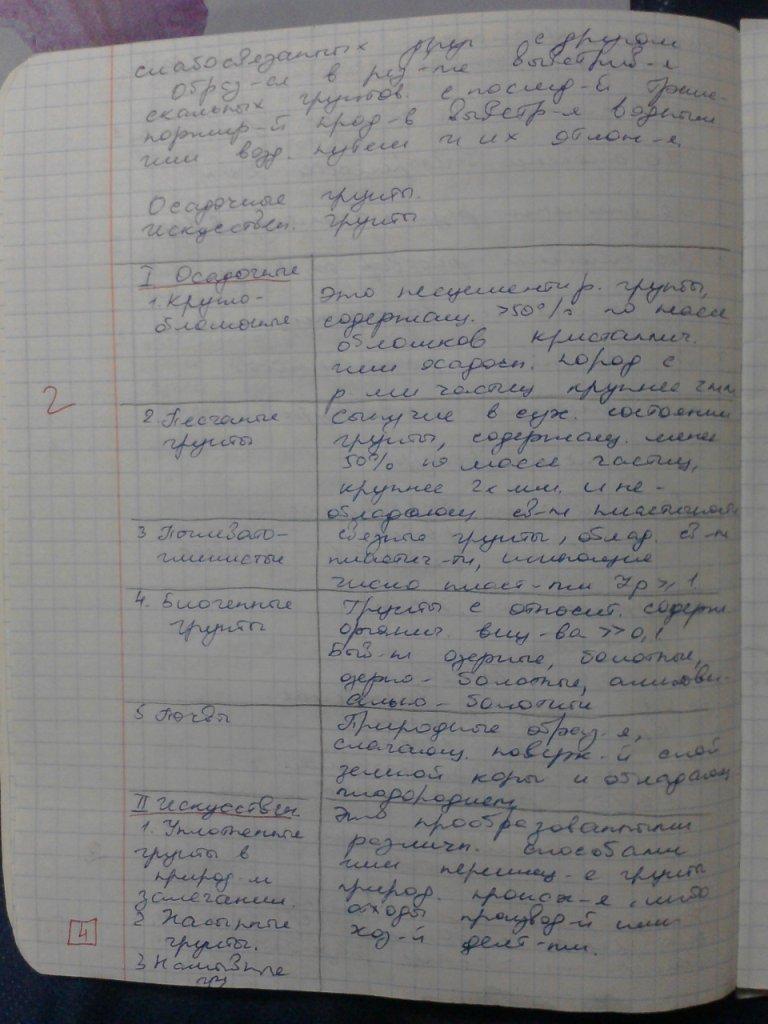 слабосвязанных друг с другом
Образ-ся в рез-те выветрив-я
скальных грунтов с послед-й транс-
портир-й прод-в выветр-я водным
или возд. путем и их отлож-я.
Осадочные грунты.
Искусствен. грунты
I Осадочные
1. Крупно-
обломочные
Это несцементир. грунты,
содержащ. >50% по массе
обломков кристаллич.
или осадочн. пород с
р-ми частиц крупнее 2 мм
2. Песчаные
грунты
Сыпучие в сух. состоянии
грунты, содержащ. менее
50% по массе частиц,
крупнее 2х мм. и не-
обладающ св-м пластичности
3 Пылевато-
глинистые
Связные грунты, облад. св-м
пластич-ти, имеющие
число пласт-ти Jp ≥ 1
4. Биогенные
грунты
Грунты с относит. содерж.
органич. вещ-ва >> 0,1
Быв-т озерные, болотные,
озерно-болотные, аллюви-
ально-болотные
5 Почвы
Природные образ-я,
слагающ. поверх-й слой
земной коры и обладающ
плодородием
II Искусствен.
1. Уплотненные
грунты в
природ-м
залегании.
2 Насыпные
грунты.
3 Намывные
гр
Это преобразованными
различн. способами
или перемещ-е грунты
природ. происх-я, либо
отходы производ-й или
хоз-й деят-ти.
2
4